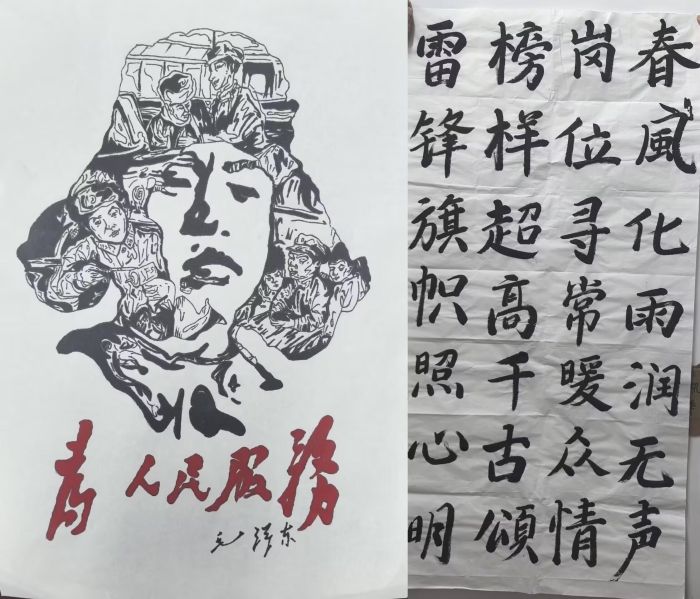 为人民服务
毛泽东
春风化雨润无声
岗位寻常暖众情
榜样超高千古頌
雷锋旗帜照心明